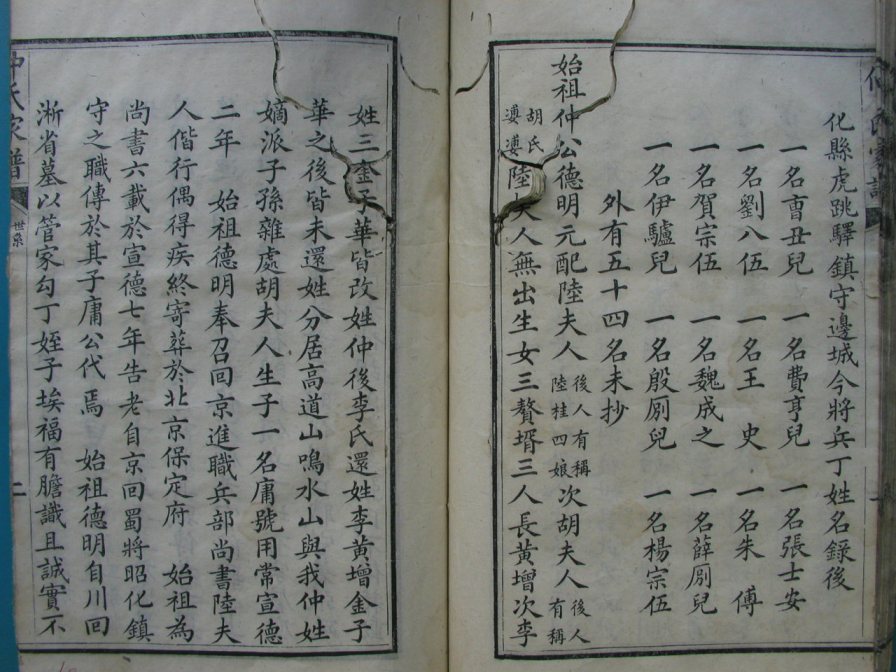 化縣虎跳驛鎮守邊城今將兵丁姓名錄後
一名曺丑兒 一名費亨兒 一名張士安
一名劉八伍 一名王 史 一名朱 傅
一名賀宗伍 一名魏成之 一名薛剧兒
一名伊驢兒 一名殷剧兒 一名楊宗伍
外有五十四名未抄
始祖仲公德明元配陸夫人後人有稱陸桂四娘次胡夫人後人有稱
胡氏婆婆陸夫人無出生女三贅壻三人長黃增次李
姓三金子華皆改姓仲後李氏還姓李黃增金子
華之後皆未還姓分居高道山鳴水山與我仲姓
嫡派子孫雜處胡夫人生子一名庸號用常宣德
二年 始祖德明奉召回京進職兵部尚書陸夫
人偕行偶得疾終寄葬於北京保定府 始祖為
尚書六載於宣德七年告老自京回蜀將昭化鎮
守之職傳於其子庸公代焉 始祖德明自川回
淅省墓以管家勾丁姪子埃福有膽識且誠實不
仲氏家譜 世系 二